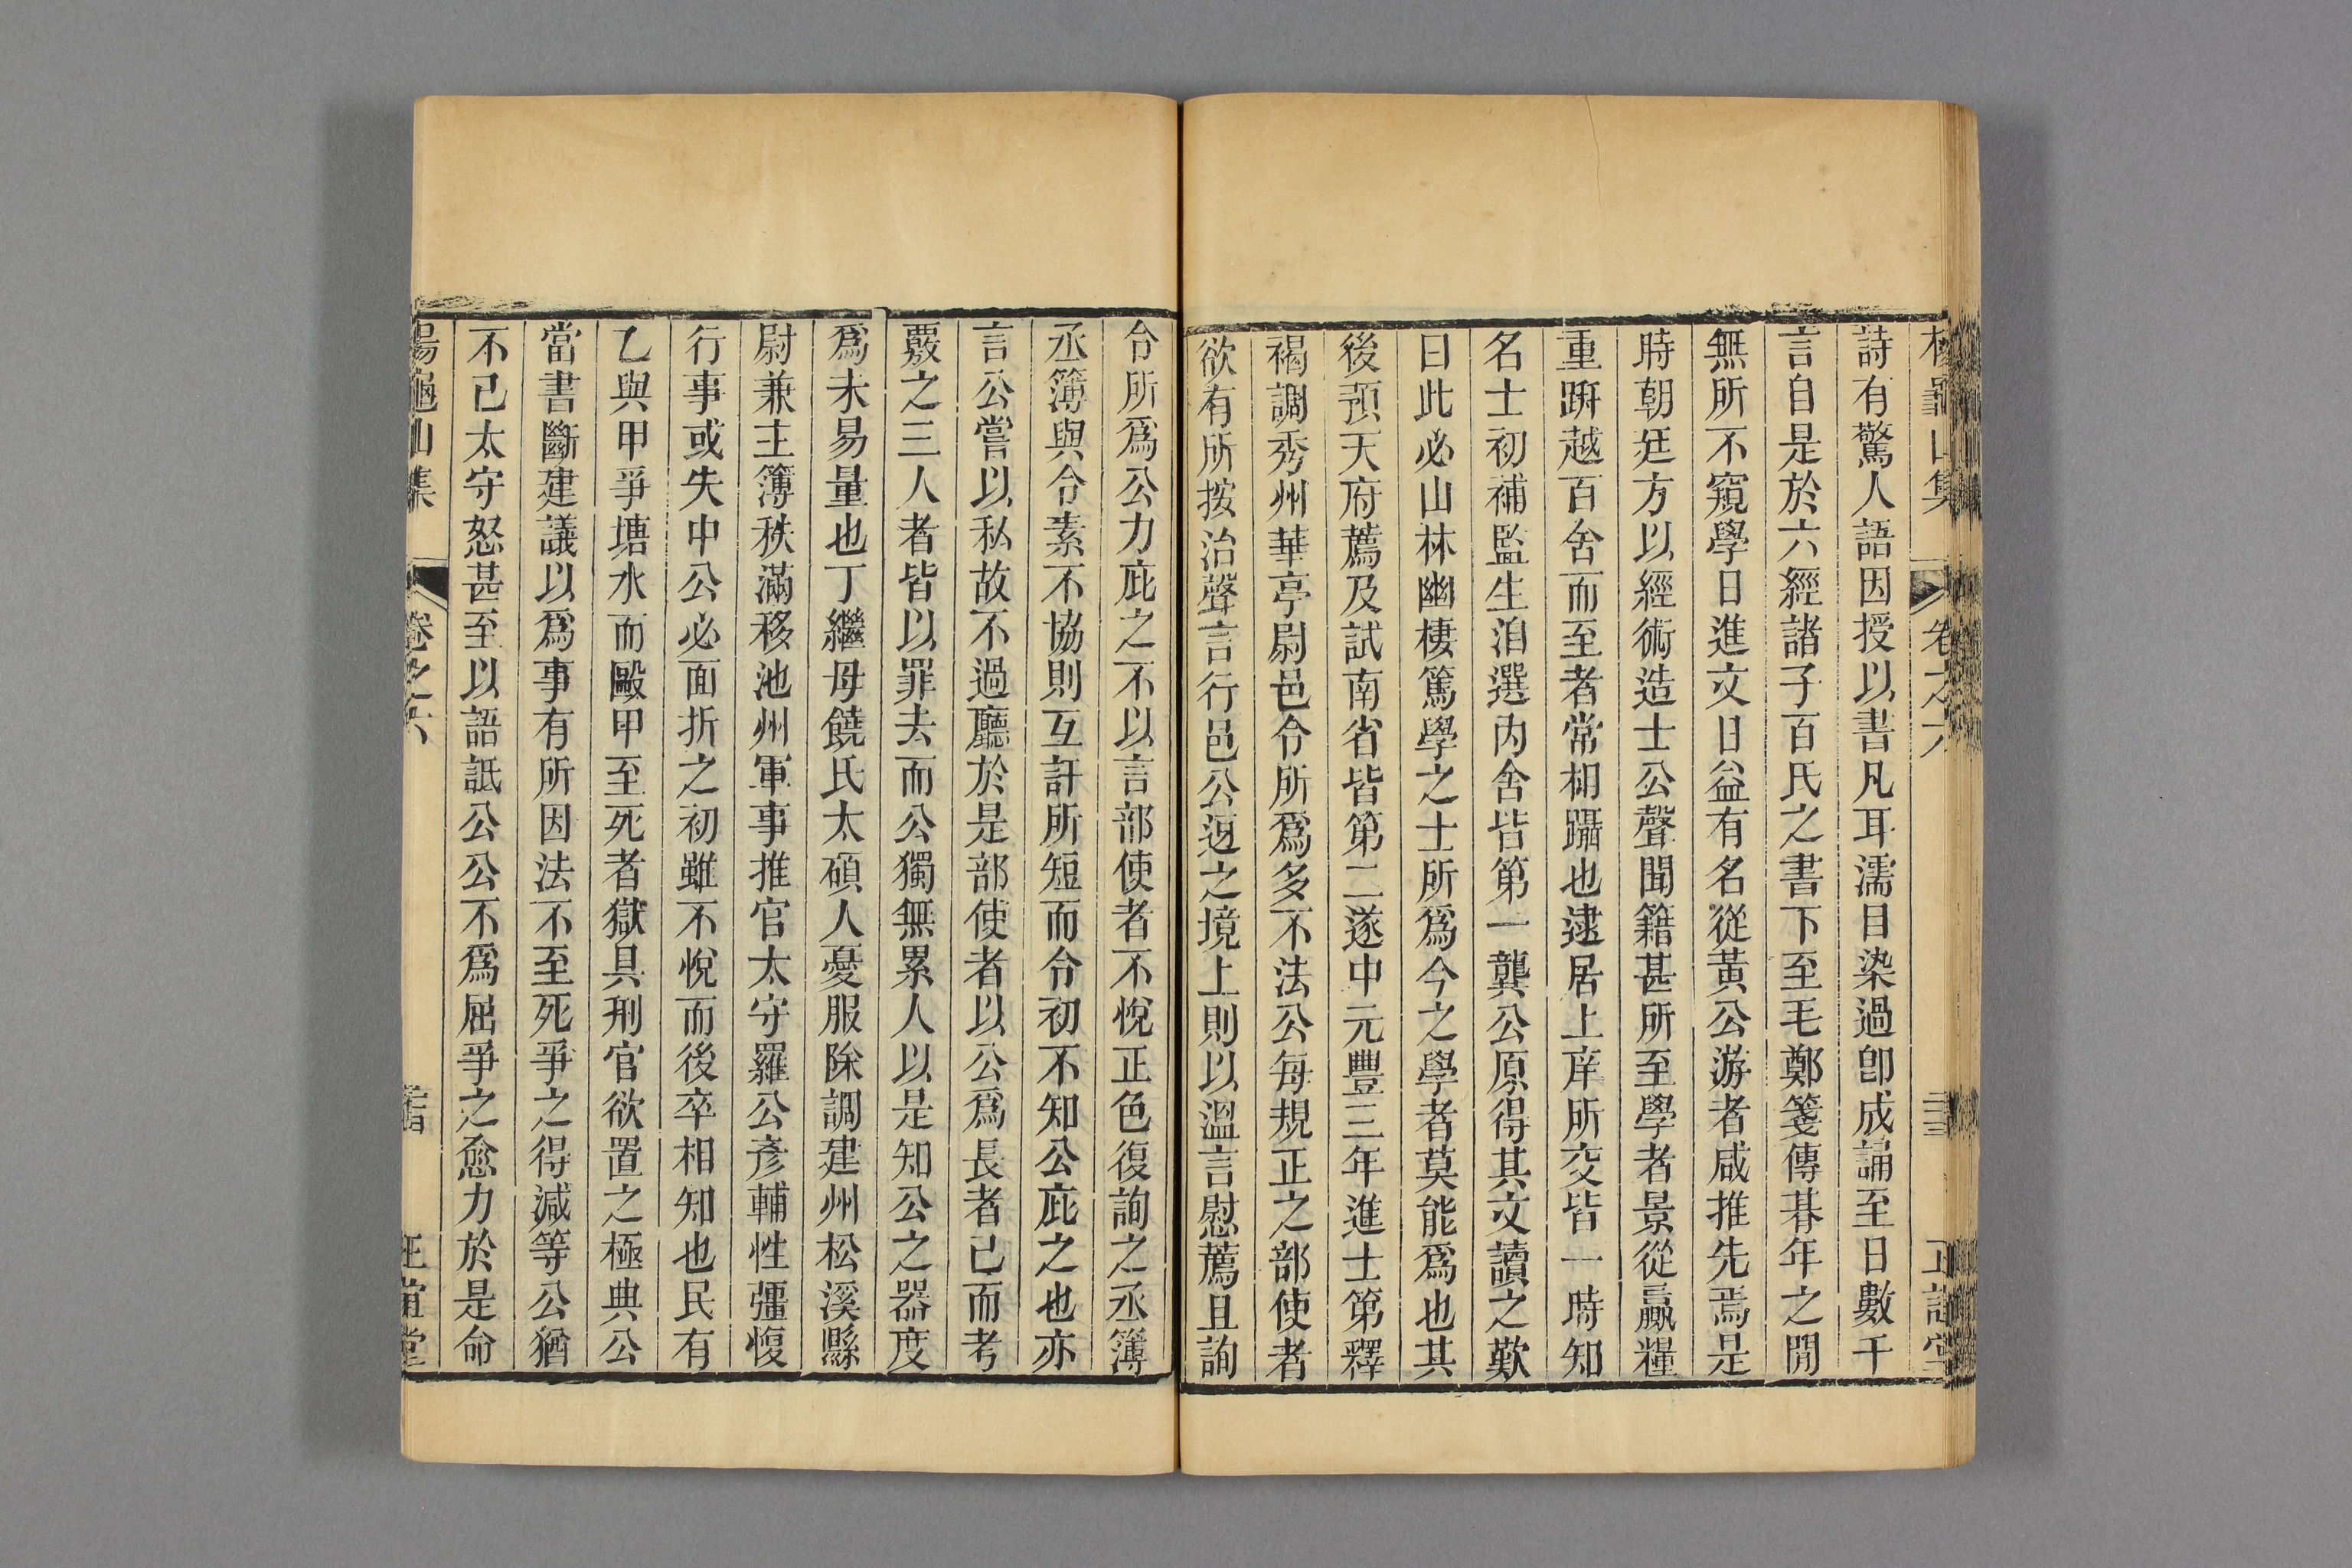 詩有驚人語因授以書凡耳濡目染過卽成誦至日數千
言自是於六經諸子百氏之書下至毛鄭箋傳朞年之閒
無所不窺學日進文日益有名從黃公游者咸推先焉是
時朝廷方以經術造士公聲聞籍甚所至學者景從贏糧
重趼越百舍而至者常相躡也逮居上庠所交皆一時知
名士初補監生洎選內舍皆第一龔公原得其文讀之歎
曰此必山林幽棲篤學之士所爲今之學者莫能爲也其
後預天府薦及試南省皆第二遂中元豐三年進士第釋
褐調秀州華亭尉邑令所爲多不法公每規正之部使者
欲有所按治聲言行邑公迓之境上則以溫言慰薦且詢
令所爲公力庇之不以言部使者不悅正色復詢之丞簿
丞簿與令素不協則互訐所短而令初不知公庇之也亦
言公嘗以私故不過廳於是部使者以公爲長者已而考
覈之三人者皆以罪去而公獨無累人以是知公之器度
爲未易量也丁繼母饒氏太碩人憂服除調建州松溪縣
尉兼主簿秩滿移池州軍事推官太守羅公彥輔性彊愎
行事或失中公必面折之初雖不悅而後卒相知也民有
乙與甲爭塘水而毆甲至死者獄具刑官欲置之極典公
當書斷建議以爲事有所因法不至死爭之得減等公猶
不已太守怒甚至以語詆公公不爲屈爭之愈力於是命
楊龜山集 卷之六